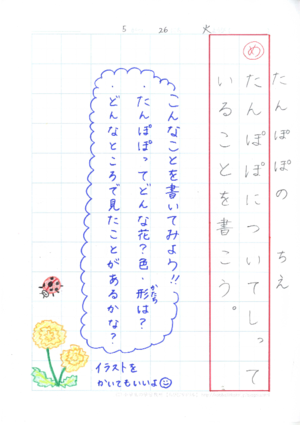 5 26 火
たんぽぽの ちえ
め たんぽぽについてしって
いることを書こう。
こんなことを書いてみよう!!
・たんぽぽってどんな花?色・形は?
かたち
・どんなところで見たことがあるかな?
イラストを
かいてもいいよ